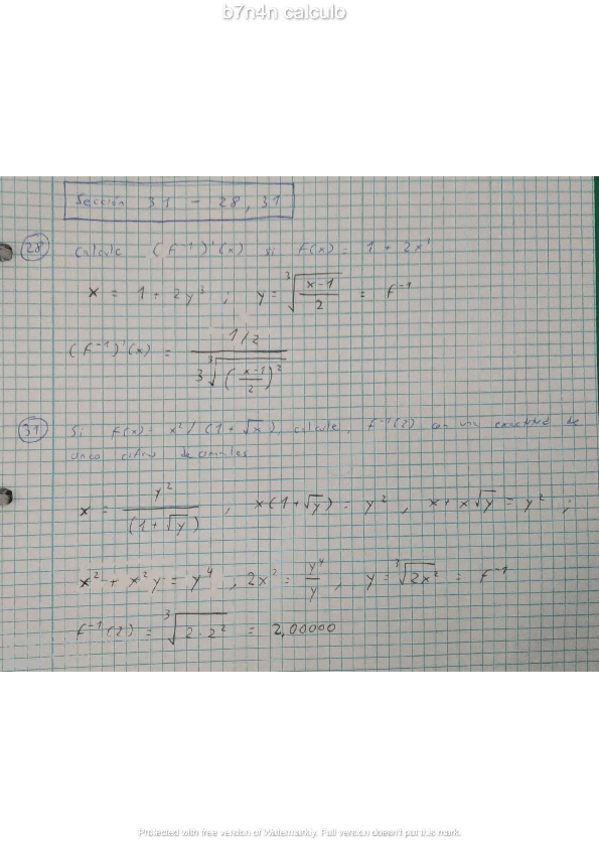 b7n4n calculo
Sección 31 - 28, 31
28 Calcule (f⁻¹)'(x) si f(x) = 1 + 2x³
x = 1 + 2y³ ; y = ∛((x-1)/2) = f⁻¹
(f⁻¹)'(x) = (1/2) / (3∛((x-1)/2)²)
31 Si f(x) = x²/(1+√x), calcule, f⁻¹(2) con una exactitud de
cinco cifras decimales
x = y²/(1+√y) , x(1+√y) = y² , x + x√y = y² ;
x² + x²y = y⁴ , 2x² = y⁴/y , y = ∛(2x²) = f⁻¹
f⁻¹(2) = ∛(2·2²) = 2,00000
Protected with free version of Watermarkly. Full version doesn't put this mark.